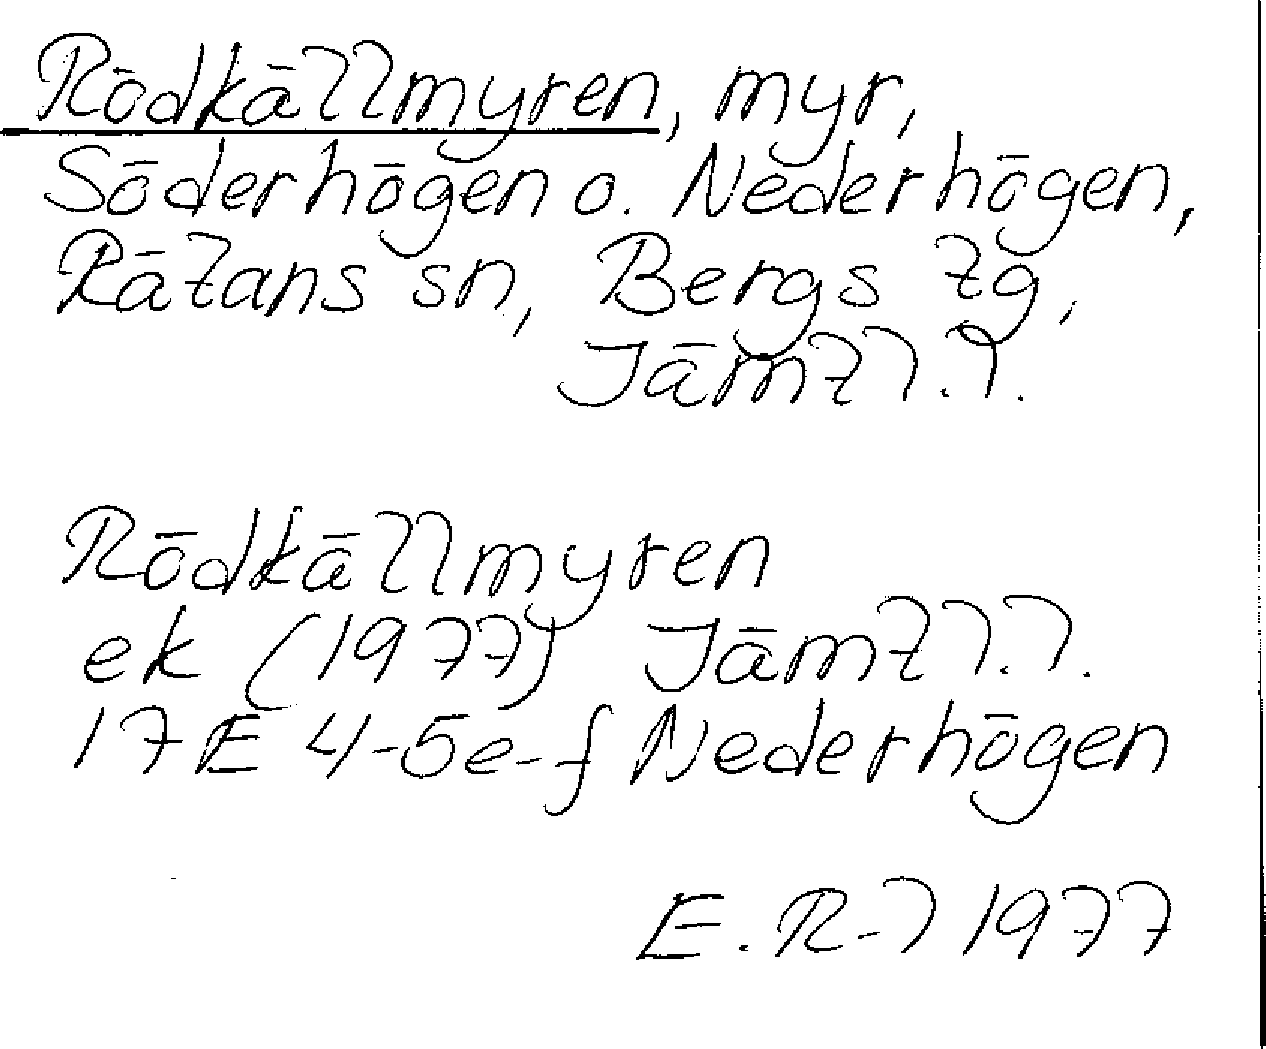 Rödkällmyren, myr,
Söderhögen o. Nederhögen,
Rätans sn, Bergs tg,
Jämtl.l.
Rödkällmyren
ek (1977) Jämtl.l.
17E 4-5e-f Nederhögen
E. R-l 1977